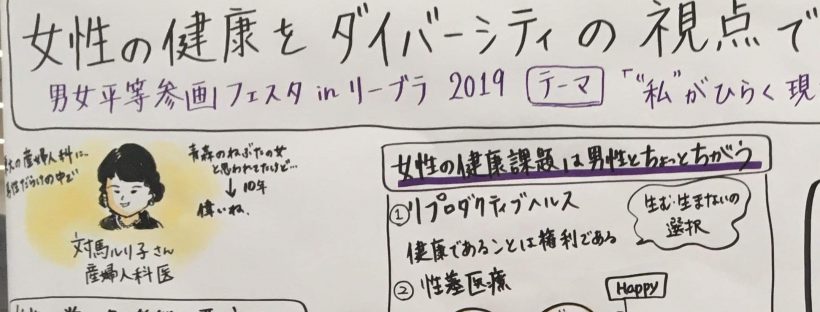 女性の健康をダイバーシティの視点で
男女平等参画フェスタ in リーブラ 2019 テーマ 「"私"がひらく現
の産婦人科に…
男性だらけの中で
青森のねぶたの女
と思われてたけど…
↓ 10年
偉いね、
対馬ルリ子さん
産婦人科医
女性の健康課題は男性とちょっとちがう
① リプロダクティブヘルス
健康であることは権利である
生む・生まないの
選択
② 性差医療
Happy